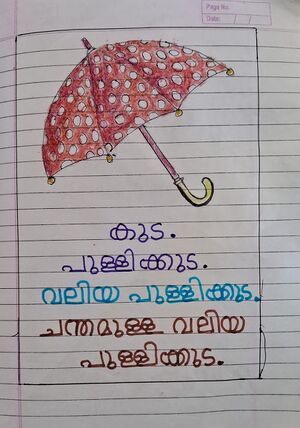 Page No.
Date: / /
കുട.
പുള്ളിക്കുട.
വലിയ പുള്ളിക്കുട.
ചന്തമുള്ള വലിയ
പുള്ളിക്കുട.